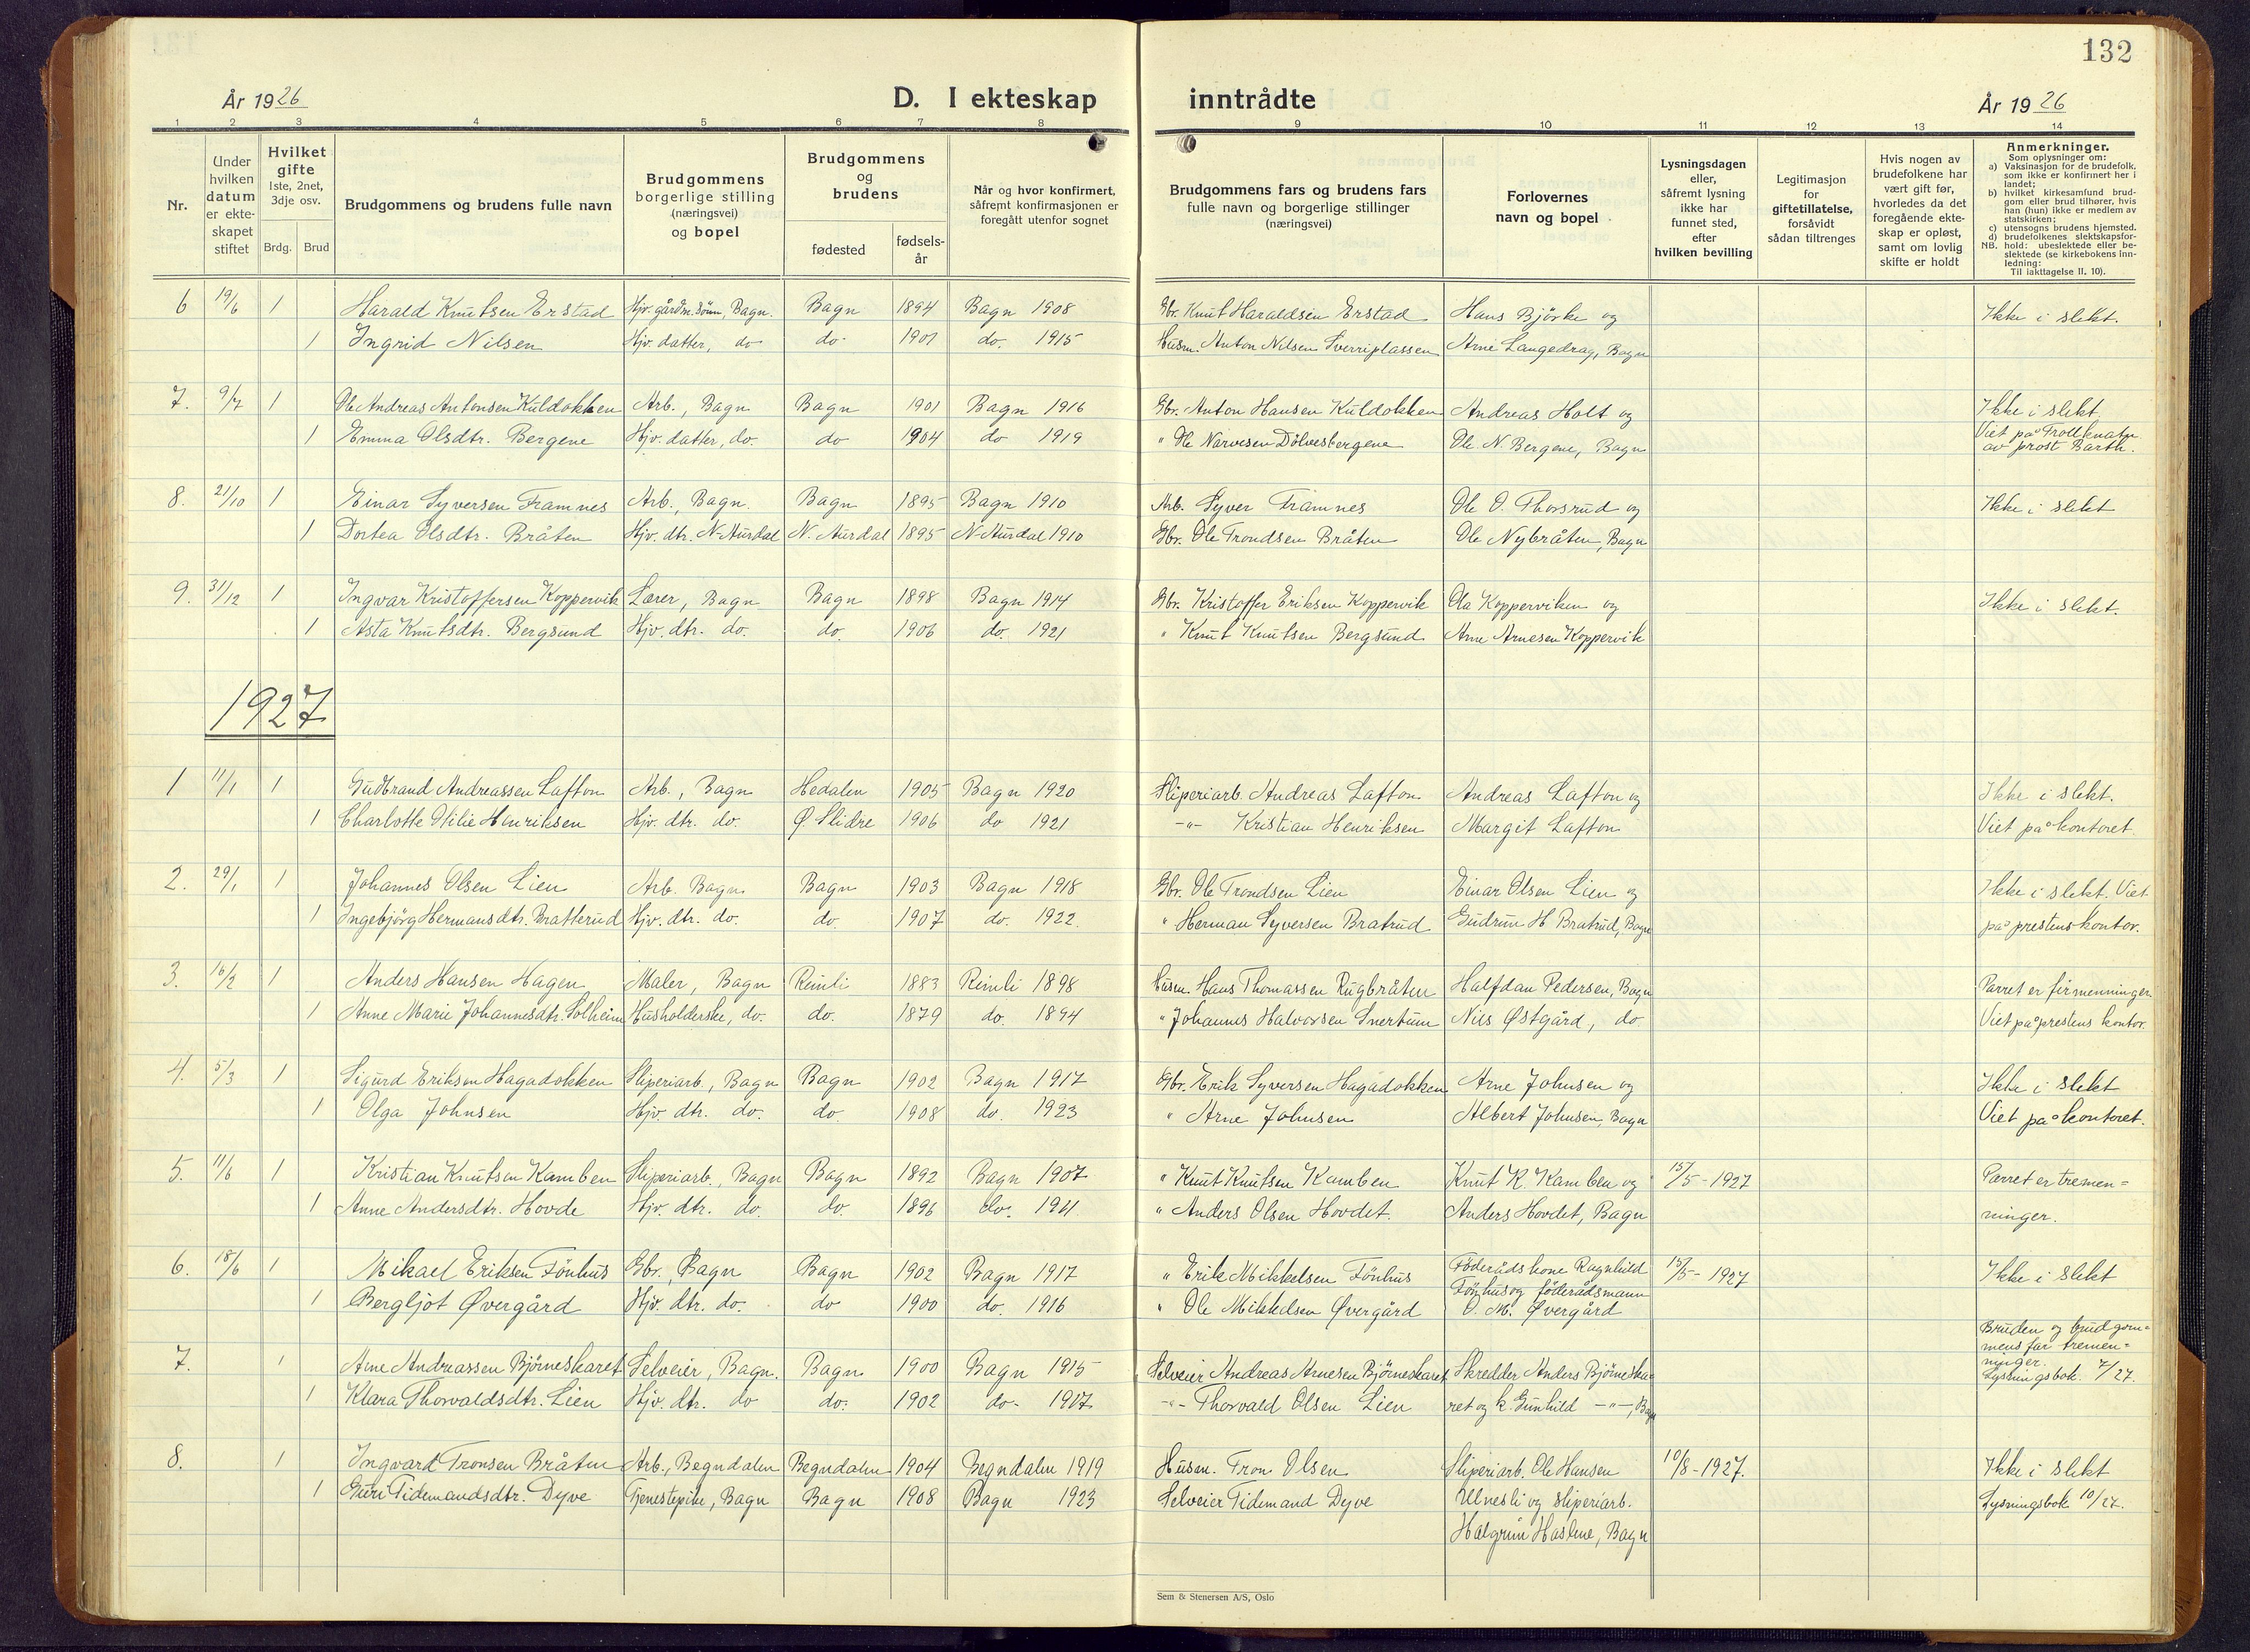 132
År 1926 D. I ekteskap inntrådte År 1926
1 2 3 4 5 6 7 8 9 10 11 12 13 14
Nr.
Under
hvilken
datum
er ekte-
skapet
stiftet
Hvilket
gifte
1ste, 2net,
3dje osv.
Brdg. Brud
Brudgommens og brudens fulle navn
Brudgommens
borgerlige stilling
(næringsvei)
og bopel
Brudgommens
og
brudens
fødested
fødsels-
år
Når og hvor konfirmert,
såfremt konfirmasjonen er
foregått utenfor sognet
Brudgommens fars og brudens fars
fulle navn og borgerlige stillinger
(næringsvei)
Forlovernes
navn og bopel
Lysningsdagen
eller,
såfremt lysning
ikke har
funnet sted,
efter
hvilken bevilling
Legitimasjon
for
giftetillatelse,
forsåvidt
sådan tiltrenges
Hvis nogen av
brudefolkene har
vært gift før,
hvorledes da det
foregående ekte-
skap er opløst,
samt om lovlig
skifte er holdt
Anmerkninger.
Som oplysninger om:
a) Vaksinasjon for de brudefolk,
som ikke er konfirmert her i
landet;
b) hvilket kirkesamfund brud-
gom eller brud tilhører, hvis
han (hun) ikke er medlem av
statskirken;
c) utensogns brudens hjemsted.
d) brudefolkenes slektskapsfor-
NB. hold: ubeslektede eller be-
slektede (se kirkebokens inn-
ledning:
Til iakttagelse II. 10).
6 19/6 1 Harald Knutsen Erstad Hjv. gårdm. sønn, Bagn. Bagn 1894 Bagn 1908 Gbr. Knut Haraldsen Erstad Hans Bjørke og Ikke i slekt.
1 Ingrid Nilsen Hjv. datter, do do 1901 do. 1915 Husm. Anton Nilsen Sverriplassen Arne Langedrag, Bagn
7. 9/7 1 Ole Andreas Antonsen Kuldokken Arb., Bagn Bagn 1901 Bagn 1916 Gbr. Anton Hansen Kuldokken Andreas Holt og Ikke i slekt.
1 Emma Olsdtr. Bergene Hjv. datter, do. do 1904 do 1919 " Ole Narvesen Dølvesbergene Ole N. Bergene, Bagn Viet på Trollknatn
av prost Barth.
8. 21/10 1 Einar Syversen Framnes Arb., Bagn. Bagn 1895 Bagn 1910 Arb. Syver Framnes Ole O. Thorsrud og Ikke i slekt
1 Dortea Olsdtr. Bråten Hjv. dtr. N-Aurdal N. Aurdal 1895 N-Aurdal 1910 Gbr. Ole Trondsen Bråten Ole Nybråten, Bagn
9. 31/12 1 Ingvar Kristoffersen Koppervik Lærer, Bagn Bagn 1898 Bagn 1914 Gbr. Kristoffer Eriksen Koppervik Ola Kopperviken og Ikke i slekt.
1 Asta Knutsdtr. Bergsund Hjv. dtr. do. do. 1906 do. 1921 " Knut Knutsen Bergsund Arne Arnesen Koppervik
1927
1 11/1 1 Gudbrand Andreassen Lafton Arb., Bagn Hedalen 1905 Bagn 1920 Sliperiarb. Andreas Lafton Andreas Lafton og Ikke i slekt.
1 Charlotte Otilie Henriksen Hjv. dtr. do. Ø. Slidre 1906 do 1921 -"- Kristian Henriksen Margit Lafton Viet på kontoret.
2. 29/1 1 Johannes Olsen Lien Arb. Bagn Bagn 1903 Bagn 1918 Gbr. Ole Trondsen Lien Einar Olsen Lien og Ikke i slekt. Viet
1 Ingebjørg Hermansdtr. Bratterud Hjv. dtr. do. do. 1907 do. 1922. " Herman Syversen Bratrud Gudrun H Bratrud, Bagn på prestens kontor.
3. 16/2 1 Anders Hansen Hagen Maler, Bagn Reinli 1883 Reinli 1898 Husm. Hans Thomassen Rugbråten Halfdan Pedersen, Bagn Parret er firmenninger.
1 Anne Marie Johannesdtr. Solheim Husholderske, do. do. 1879 do. 1894 " Johannes Halvorsen Snertum Nils Østgård, do. Viet på prestens kontor.
4. 5/3 1 Sigurd Eriksen Hagadokken Sliperiarb., Bagn Bagn 1902 Bagn 1917 Gbr. Erik Syversen Hagadokken Arne Johnsen og Ikke i slekt
1 Olga Johnsen Hjv dtr. do. do. 1908 do. 1923 " Arne Johnsen Albert Johnsen, Bagn Viet på kontoret.
5. 11/6 1 Kristian Knutsen Kamben Sliperiarb., Bagn Bagn 1892 Bagn 1907 " Knut Knutsen Kamben Knut K. Kamben og 15/5-1927 Parret er tremen=
1 Anne Andersdtr. Hovde Hjv. dtr. do. do. 1896 do. 1911 " Anders Olsen Hovdet. Anders Hovdet, Bagn ninger.
6. 18/6 1 Mikael Eriksen Fönhus Gbr., Bagn Bagn 1902 Bagn 1917 " Erik Mikkelsen Fönhus Föderådskone Ragnhild 15/5-1927 Ikke i slekt
Fönhus og föderådsmann
1 Bergljot Øvergård Hjv. dtr. do. do 1900 do. 1916 " Ole Mikkelsen Øvergård O. M. Øvergård
7. 1 Arne Andreassen Björneskaret Selveier, Bagn. Bagn 1900 Bagn 1915 Selveier Andreas Arnesen Björneskaret Skredder Anders Björneska- Bruden og brudgom=
mens far tremen=
ninger.
Lysningsbok. 7/27.
1 Klara Thorvaldsdtr. Lien Hjv. dtr. do do. 1902 do. 1917 -"- Thorvald Olsen Lien ret og k. Gunhild -"-, Bagn
8. 1 Ingvard Tronsen Bråten Arb., Begndalen Begndalen 1904 Begndalen 1919 Husm. Tron Olsen Sliperiarb. Ole Hansen 10/8-1927. Ikke i slekt
1 Guri Tidemandsdtr. Dyve Tjenestepike, Bagn Bagn 1908 Bagn 1923 Selveier Tidemand Dyve Ulnesli og sliperiarb. Lysningsbok 10/27.
Halgrim Haslene, Bagn
Sem & Stenersen A/S, Oslo